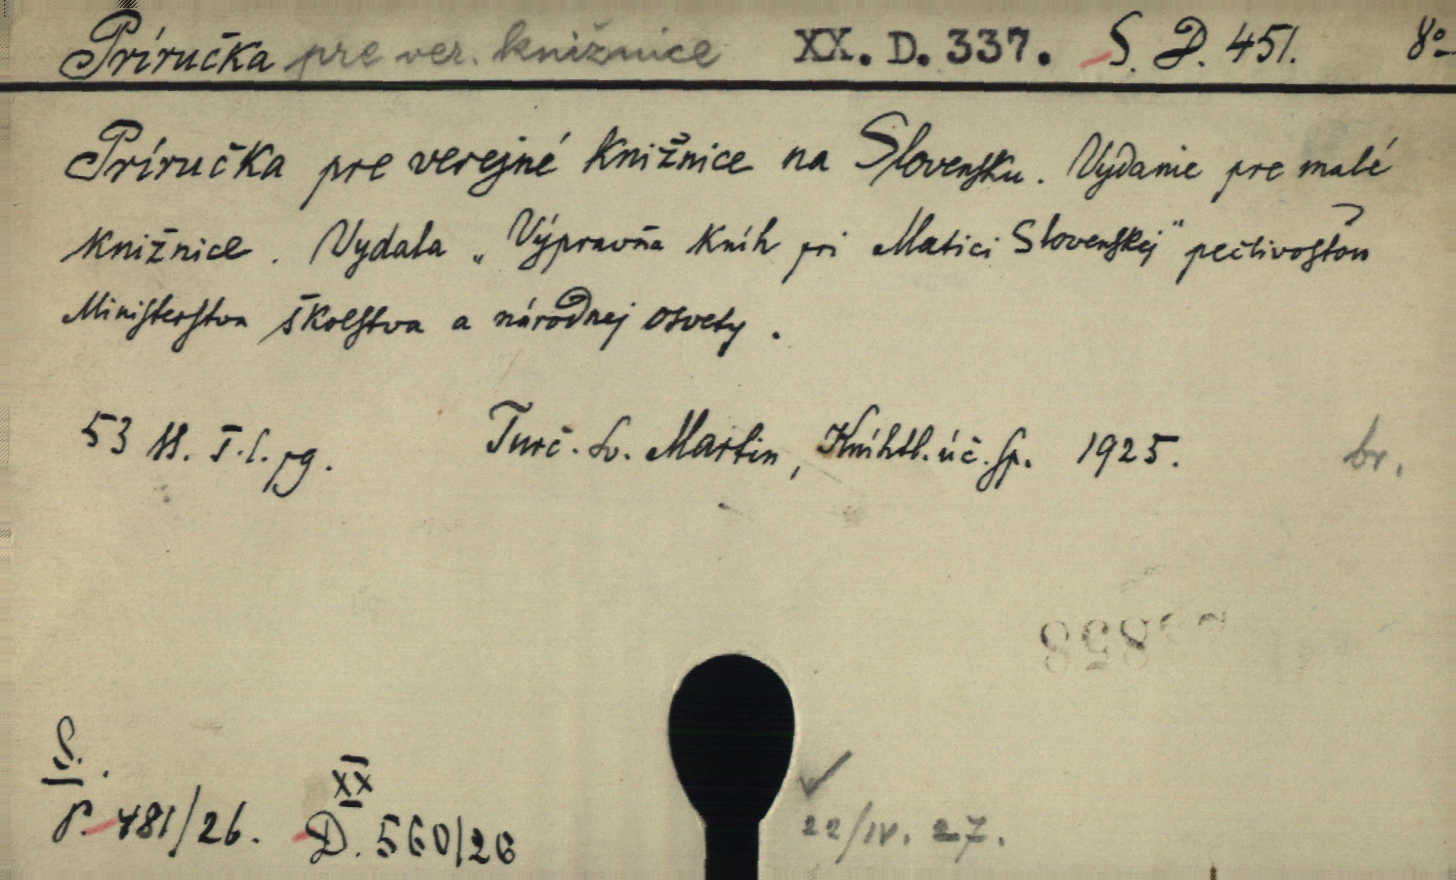 Príručka pre ver. knižnice XX. D. 337. S. D. 451. 8°
Príručka pre verejné knižnice na Slovensku. Vydanie pre malé
knižnice. Vydala „Výpravňa kníh pri Matici Slovenskej" pečlivosťou
Ministerstva školstva a národnej osvety.
53 s. I. l. pg. Turč. Sv. Martin, Kníhtl. úč. sp. 1925. br.
S.
P. 481/26. XX
D. 560/26
22/IV. 27.